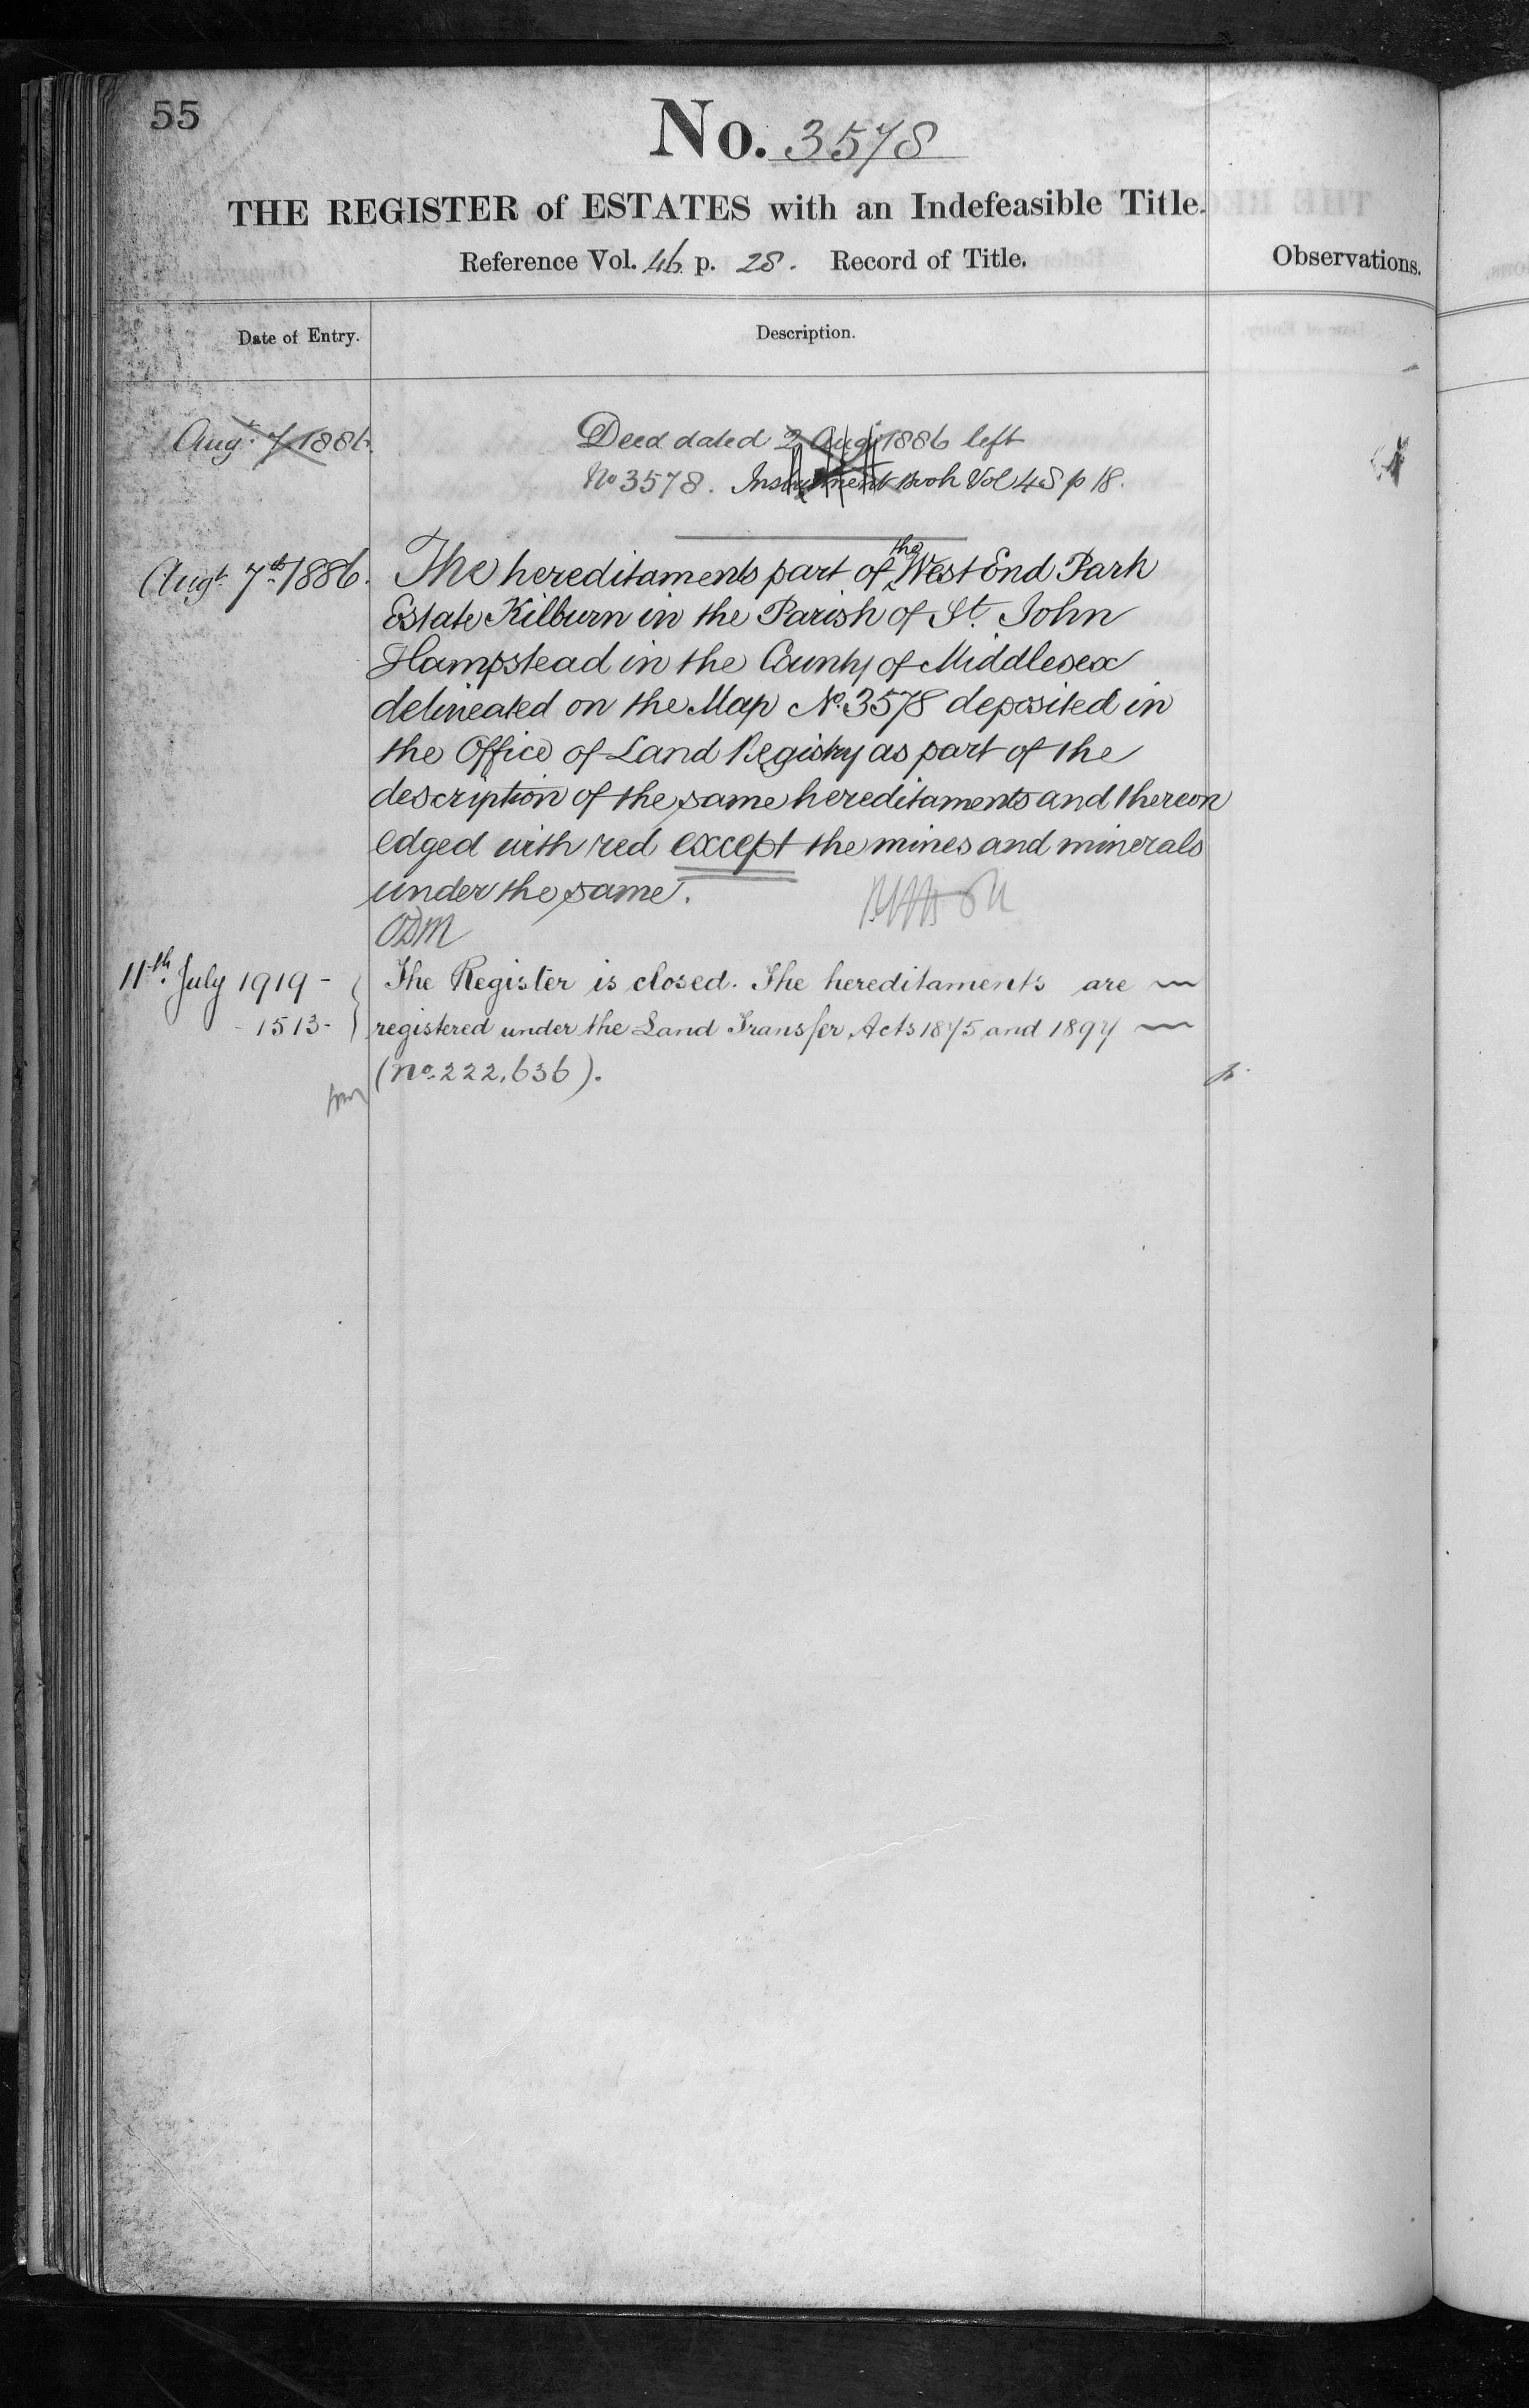 55
No. 3578
THE REGISTER of ESTATES with an Indefeasible Title.
Reference Vol. 46 p. 28. Record of Title.
Observations.
Date of Entry.
Description.
Augt. 7 1886.
Deed dated 2 Augt 1886 left
No 3578. Instrument Book Vol 48 p 18.
Augt. 7th 1886.
The hereditaments part of the West End Park
Estate Kilburn in the Parish of St. John
Hampstead in the County of Middlesex
delineated on the Map No. 3578 deposited in
the Office of Land Registry as part of the
description of the same hereditaments and thereon
edged with red except the mines and minerals
under the same.
11th. July 1919 -
- 1513 -
The Register is closed. The hereditaments are
registered under the Land Transfer Acts 1875 and 1897
(no. 222,636).